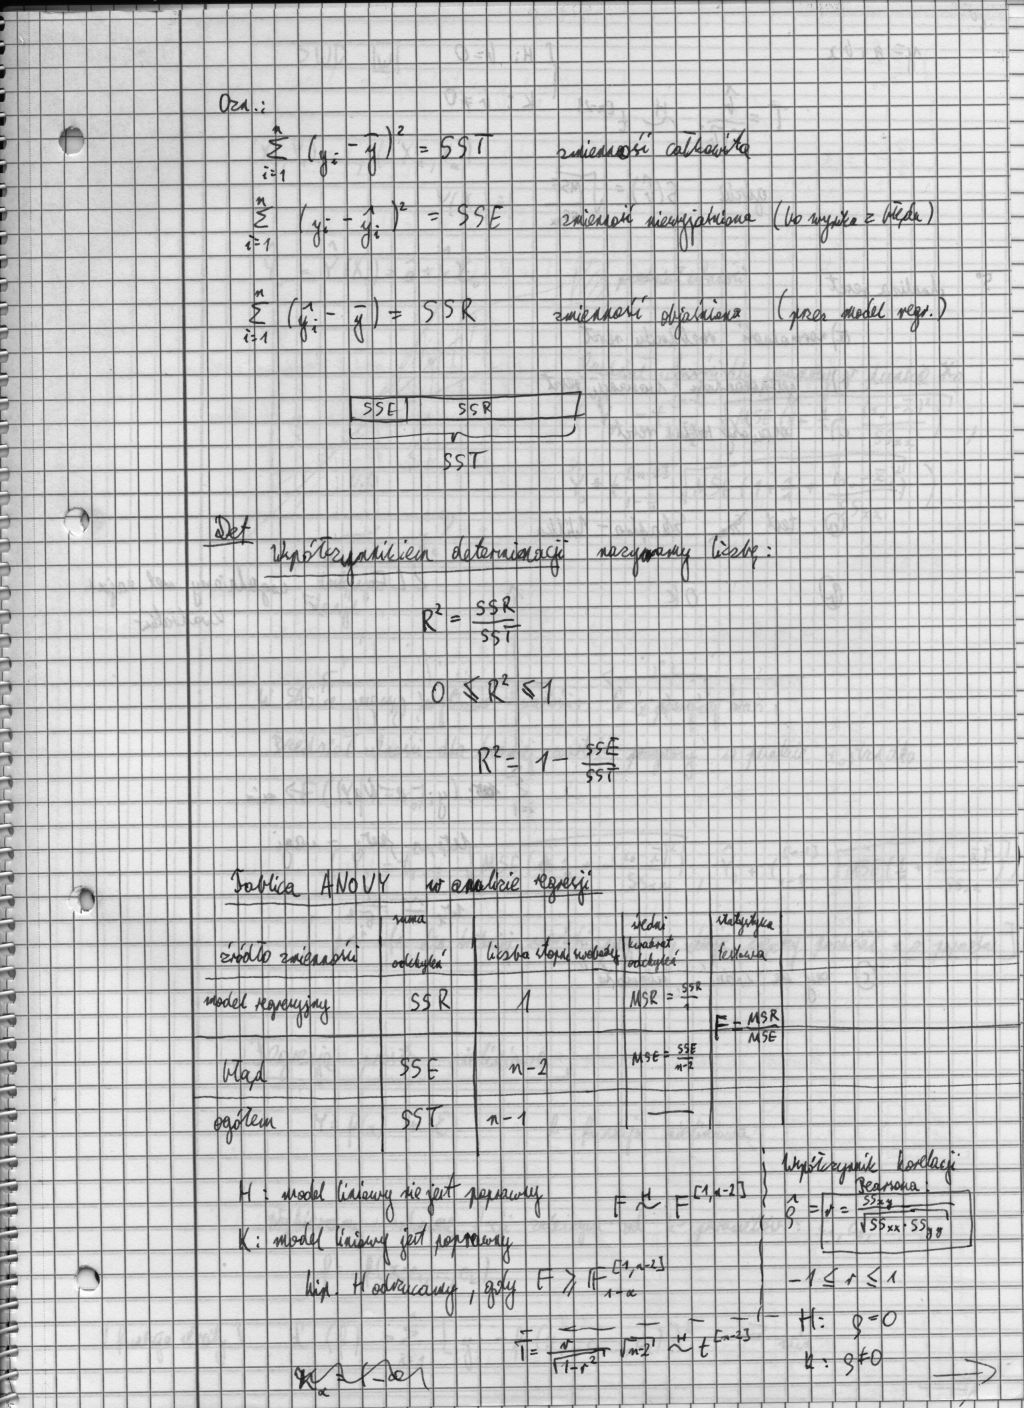 Ozn.:
$\sum_{i=1}^{n} (y_i - \bar{y})^2 = SST$ zmienność całkowita
$\sum_{i=1}^{n} (y_i - \hat{y}_i)^2 = SSE$ zmienność niewyjaśniona (bo wynika z błędu)
$\sum_{i=1}^{n} (\hat{y}_i - \bar{y}) = SSR$ zmienność objaśniona (przez model regr.)
SSE SSR
SST
Def
Współczynnikiem determinacji nazywamy liczbę:
$R^2 = \frac{SSR}{SST}$
$0 \leqslant R^2 \leqslant 1$
$R^2 = 1 - \frac{SSE}{SST}$
Tablica ANOVY w analizie regresji
źródło zmienności | suma odchyleń | liczba stopni swobody | średni kwadrat odchyleń | statystyka testowa
model regresyjny | SSR | 1 | $MSR = \frac{SSR}{1}$ | $F = \frac{MSR}{MSE}$
błąd | SSE | n-2 | $MSE = \frac{SSE}{n-2}$
ogółem | SST | n-1 | —
H: model liniowy nie jest poprawny $F \overset{H}{\sim} F^{[1,n-2]}$
K: model liniowy jest poprawny
hip. H odrzucamy, gdy $F \geqslant F_{1-\alpha}^{[1,n-2]}$
Współczynnik korelacji
Pearsona:
$\hat{\rho} = r = \frac{SS_{xy}}{\sqrt{SS_{xx} \cdot SS_{yy}}}$
$-1 \leq r \leq 1$
H: $\rho = 0$
K: $\rho \neq 0$
$T = \frac{r}{\sqrt{1-r^2}} \sqrt{n-2} \overset{H}{\sim} t^{[n-2]}$